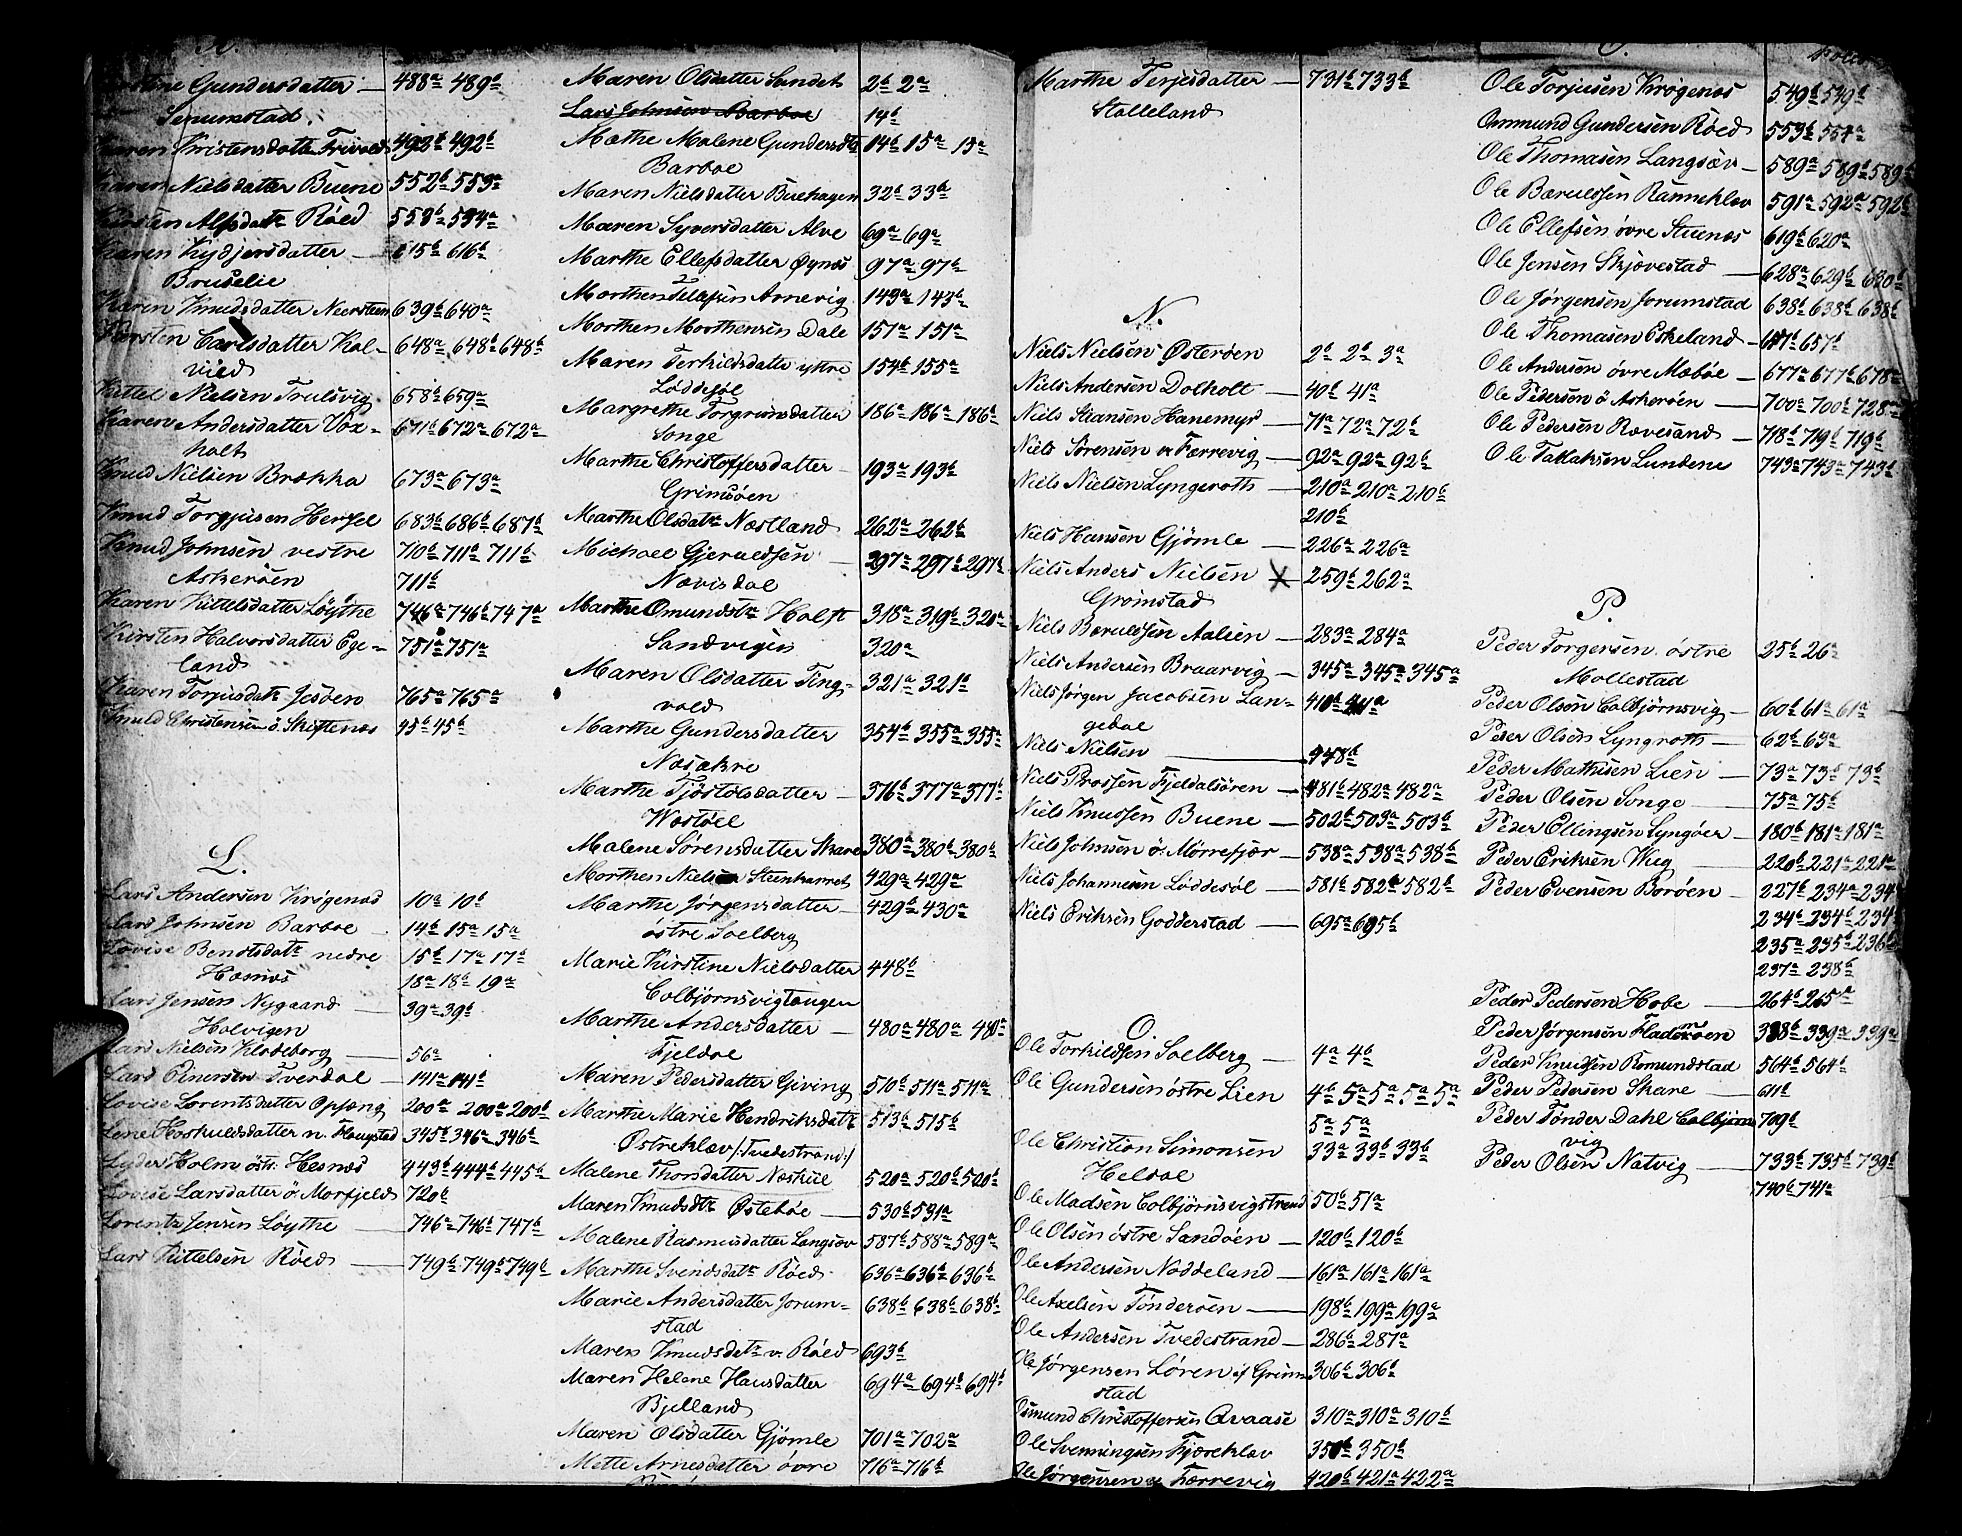 K.
Gundersdatter — 488a 489b
Senumstad.
Karen Kristensdatt Trivold 492b 492b
Karen Nielsdatter Buene 552b 553a
Kirsten Alfsdatr Røed 553b 554a
Karen Kydjersdatter — 615b 616b
Bruselie
Karen Knudsdatter Neersteen 639b 640a
Kirsten Carlsdatter Kal- 648a 648b 648b
vild
Kittel Nielsen Trulsvig 658b 659a
Karen Andersdatter Vox- 671b 672a 672a
holt
Knud Nielsen Brækka 673a 673a
Knud Torgjusen Herefel 683b 686b 687b
Knud Johnsen vestre 710b 711a 711b
Askerøen 711b
Karen Kittelsdatter Løgthe 746a 746b 747a
Kirsten Halvorsdatter Ege- 751a 751a
land
Karen Torjusdatr Jesberg 765a 765a
Knuld Christensen ö. Skiftenæs 45b 45b
L.
Lars Andersen Krøgenæs 10a 10b
Lars Johnsen Barboe 14b 15a 15a
Lovise Bendtsdatr nedre 15b 17a 17b
Hasnæs 18a 18b 19a
Lars Jensen Nygaard — 39a 39b
Holvigen
Lars Nielsen Klodeborg — 56a
Lars Einersen Tverdal — 141a 141b
Lovise Lorentsdatter Opsang 200a 200a 200b
Lene Hoskuldsdatter n. Haugstad 345b 346a 346b
Lyder Holm östr. Hesnæs 443b 444b 445b
Lovise Larsdatter ö. Morfjeld 720b
Lorentz Jensen Løgthe — 746a 746b 747b
Lars Kittelsen Røed — 749b 749b 749b
Maren Olsdatter Sundet 2b 2a
Lars Johnsen Barboe 14b
Mathe Malene Gundersdtr 14b 15a 15a
Barboe
Maren Nielsdatter Buehagen 32b 33b
Maren Syversdatter Alve 69a 69a
Marthe Ellefsdatter Øynæs 97a 97b
Morthen Tellefsen Arnevig 143a 143b
Morthen Morthensen Dale 151a 151a
Maren Terkildsdatter yttre 154b 155a
Løddesøl
Margrethe Torgrimsdatter 186a 186a 186b
Songe
Marthe Christoffersdatter 193a 193b
Grimsøen
Marthe Olsdatr Næstland 262a 262b
Michael Gjeruldsen 297a 297b 297b
Nævisdal
Marthe Omundsdtr Holst 318a 319b 320a
Sandvigen 320a
Maren Olsdatter Ting- 321a 321b
vold
Marthe Gundersdatter 354b 355a 355a
Næsakre
Marthe Tjøstolsdatter — 376b 377a 377b
Wæstøel
Malene Sørensdatter Skare 380a 380b 380b
Morthen Nielsen Steenharret 429a 429a
Marthe Jørgensdatter 429b 430a
østre Soelberg
Marie Kirstine Nielsdatter 448b
Colbjørnsvigtangen
Marthe Andersdatter — 480a 480a 480a
Fjeldal
Maren Pedersdatter Giving 510b 511a 511a
Marthe Marie Hendriksdatr 513b 515b
Østreklev /:Tvedestrand:/
Malene Thorsdatter Næskile 520a 520b 520b
Maren Knudsdtr Østebøe — 530b 531a
Malene Rasmusdatter Langsæv 587b 588a 589a
Marthe Svendsdatr Røed 636a 636b 636b
Marie Andersdatter Jorum- 638b 638b 638b
stad
Maren Knudsdatr v. Røed 693b
Maren Helene Hansdatter 694a 694b 694b
Bjelland
Maren Olsdatter Gjømle 701a 702a
Mette Arnesdatter övre 716a 716b
Marthe Terjesdatter — 731b 733b
Stalleland
N.
Niels Nielsen Østerøen 2b 2b 3a
Niels Andersen Dolholt — 40b 41a
Niels Stiansen Hanemyr — 71a 72a 72b
Niels Sørensen v. Færrevig — 92a 92a 92b
Niels Nielsen Lyngeroth — 210a 210a 210b
210b
Niels Hansen Gjømle — 226a 226a
Niels Anders Nielsen X 259b 262a
Grimstad
Niels Beruldsen Aalsen — 283a 284a
Niels Andersen Braarvig — 345a 345a 345a
Niels Jørgen Jacobsen Lan- 411b 411a
gedal
Niels Nielsen — 448b
Niels Brossen Fjeldalsøren — 481b 482a 482a
Niels Knudsen Buene — 502b 503a 503b
Niels Johnsen ö. Mørrefjær — 538a 538a 538b
Niels Johannesen Løddesøl — 581b 582b 582b
Niels Eriksen Godderstad — 695a 695b
O.
Ole Torkildsen Soelberg — 4a 4b
Ole Gundersen østre Lien 4b 5a 5a 5a 5a
5a 5a
Ole Christian Simonsen 33a 33b 33b
Heldal
Ole Madsen Colbjørnsvigstrand 50b 51a
Ole Olsen østre Sandøen — 120b 120b
Ole Andersen Noddeland — 161a 161a 161a
Ole Axelsen Tønderøen — 198b 199a 199a
Ole Andersen Tvedestrand — 286b 287a
Ole Jørgensen Løren af Grim- 306b 306b
stad
Osmund Christoffersen Qvaase 310a 310a 310b
Ole Svenningsen Fjæreklev 350b 350b
Ole Jørgensen v. Færrevig 420b 421a 422a
O.
Ole Torjusen Krøgenæs 549b 549b
Ommund Gundersen Røed 553b 554a
Ole Thomasen Langsæv — 589a 589b 589b
Ole Beruldsen Ranneklev 591a 592a 592b
Ole Ellefsen øvre Stuenæs 619b 620a
Ole Jensen Skjævestad — 628a 629b 630b
Ole Jørgensen Jorumstad 638b 638b 638b
Ole Thomasen Eskeland — 657b 657b
Ole Andersen øvre Mæbøe — 677a 677b 678a
Ole Pedersen ö Askerøen — 700a 700b 728a
Ole Pedersen Rævesand — 718b 719b 719b
Ole Tallaksen Lundene 743a 743a 743b
P.
Peder Torgersen østre 25b 26a
Mollestad
Peder Olsen Colbjørnsvig — 60b 61a 61a
Peder Olsen Lyngroth — 62b 63a
Peder Mathisen Lien — 73a 73b 73b
Peder Olsen Songe — 75a 75b
Peder Ellingsen Lyngøer — 180b 181a 181a
Peder Eriksen Wiig — 220b 221a 221a
Peder Evensen Borøen — 227b 234a 234
234b 234b 234
235a 235b 236b
237a 238b
Peder Pedersen Hobe — 264b 265a
Peder Jørgensen Fladmoen 338b 339a 339a
Peder Knudsen Romundstad 564b 564b
Peder Pedersen Skare — 611b
Peder Tønder Dahl Colbjørns 709b
vig
Peder Olsen Natvig — 733b 735b 739b
740b 741a